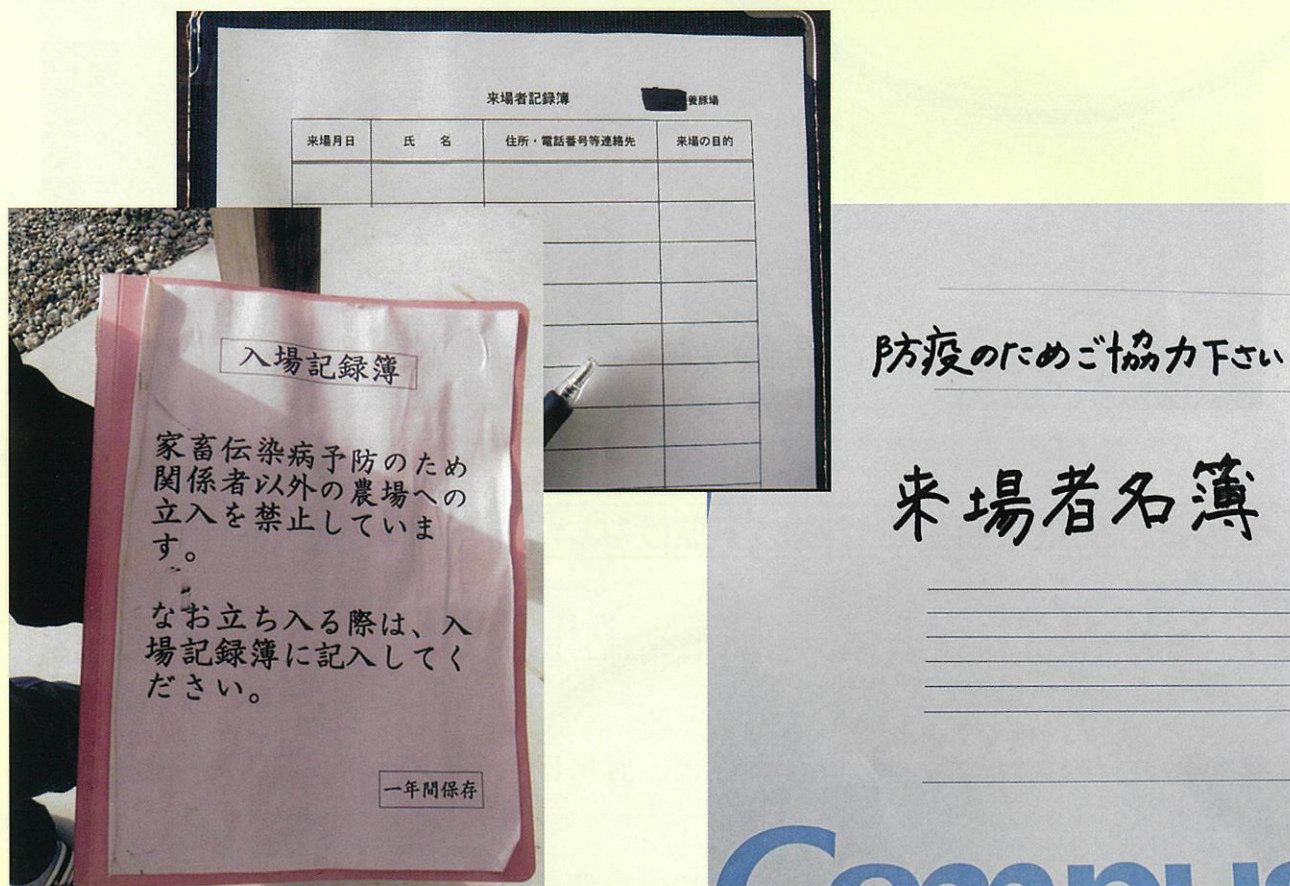 来場者記録簿
養豚場
来場月日 氏 名 住所・電話番号等連絡先 来場の目的
入場記録簿
家畜伝染病予防のため
関係者以外の農場への
立入を禁止していま
す。
なお立ち入る際は、入
場記録簿に記入してく
ださい。
一年間保存
防疫のためご協力下さい
来場者名簿
Campus